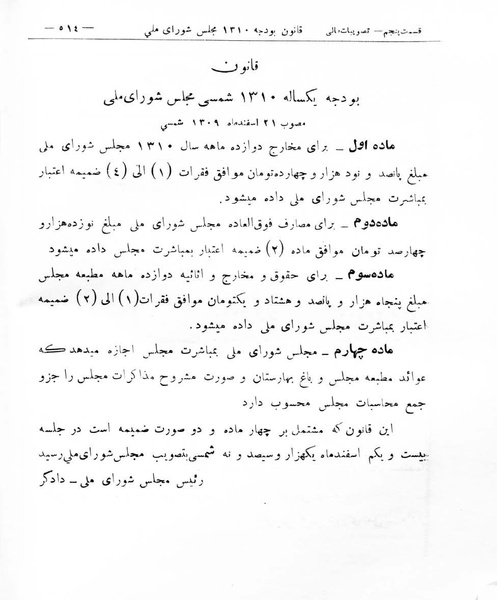 قسمت پنجم – تصویبات مالی قانون بودجه ۱۳۱۰ مجلس شورای ملی – ٥١٤ –
قانون
بودجه یکساله ۱۳۱۰ شمسی مجلس شورای ملی
مصوب ۲۱ اسفند ماه ۱۳۰۹ شمسی
ماده اول – برای مخارج دوازده ماهه سال ۱۳۱۰ مجلس شورای ملی
مبلغ پانصد و نود هزار و چهارده تومان موافق فقرات (۱) الی (٤) ضمیمه اعتبار
بمباشرت مجلس شورای ملی داده میشود.
ماده دوم – برای مصارف فوق‌العاده مجلس شورای ملی مبلغ نوزده هزار و
چهارصد تومان موافق ماده (۲) ضمیمه اعتبار بمباشرت مجلس داده میشود
ماده سوم – برای حقوق و مخارج و اثاثیه دوازده ماهه مطبعه مجلس
مبلغ پنجاه هزار و پانصد و هشتاد و یکتومان موافق فقرات (۱) الی (۲) ضمیمه
اعتبار بمباشرت مجلس شورای ملی داده میشود.
ماده چهارم – مجلس شورای ملی بمباشرت مجلس اجازه میدهد که
عوائد مطبعه مجلس و باغ بهارستان و صورت مشروح مذاکرات مجلس را جزو
جمع محاسبات مجلس محسوب دارد
این قانون که مشتمل بر چهار ماده و دو صورت ضمیمه است در جلسه
بیست و یکم اسفند ماه یکهزار و سیصد و نه شمسی بتصویب مجلس شورای ملی رسید
رئیس مجلس شورای ملی – دادگر